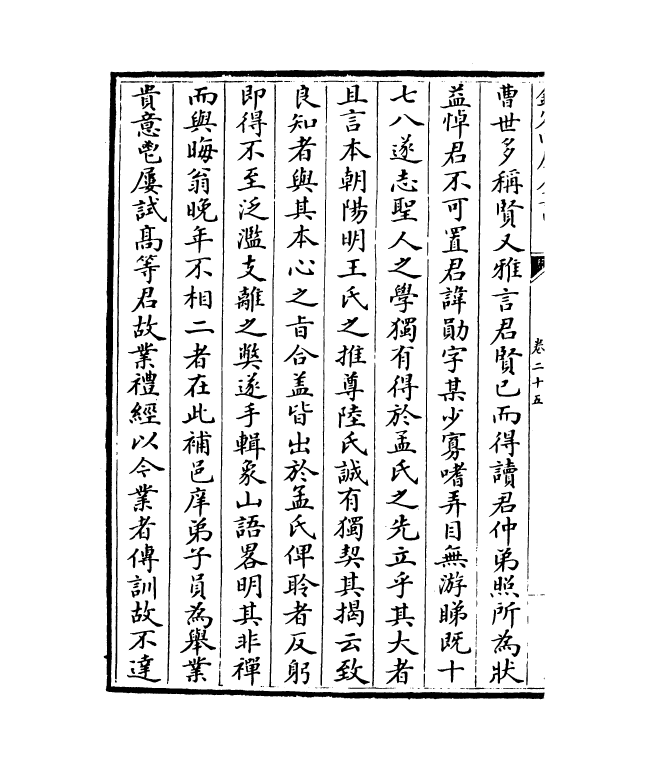 卷二十五
曹世多稱賢又雅言君賢已而得讀君仲弟照所為狀
益悼君不可置君諱勛字某少寡嗜弄目無游睇既十
七八遂志聖人之學獨有得於孟氏之先立乎其大者
且言本朝陽明王氏之推尊陸氏誠有獨契其揭云致
良知者與其本心之旨合盖皆出於孟氏俾聆者反躬
即得不至泛濫支離之弊遂手輯象山語畧明其非禪
而與晦翁晚年不相二者在此補邑庠弟子員為舉業
貴意鬯屢試髙等君故業禮經以今業者傅訓故不達